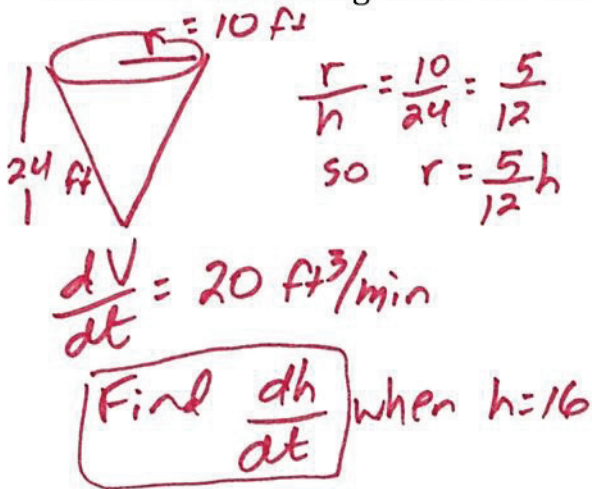 r = 10 ft
24 ft
r/h = 10/24 = 5/12
so r = 5/12 h
dV/dt = 20 ft³/min
Find dh/dt when h=16